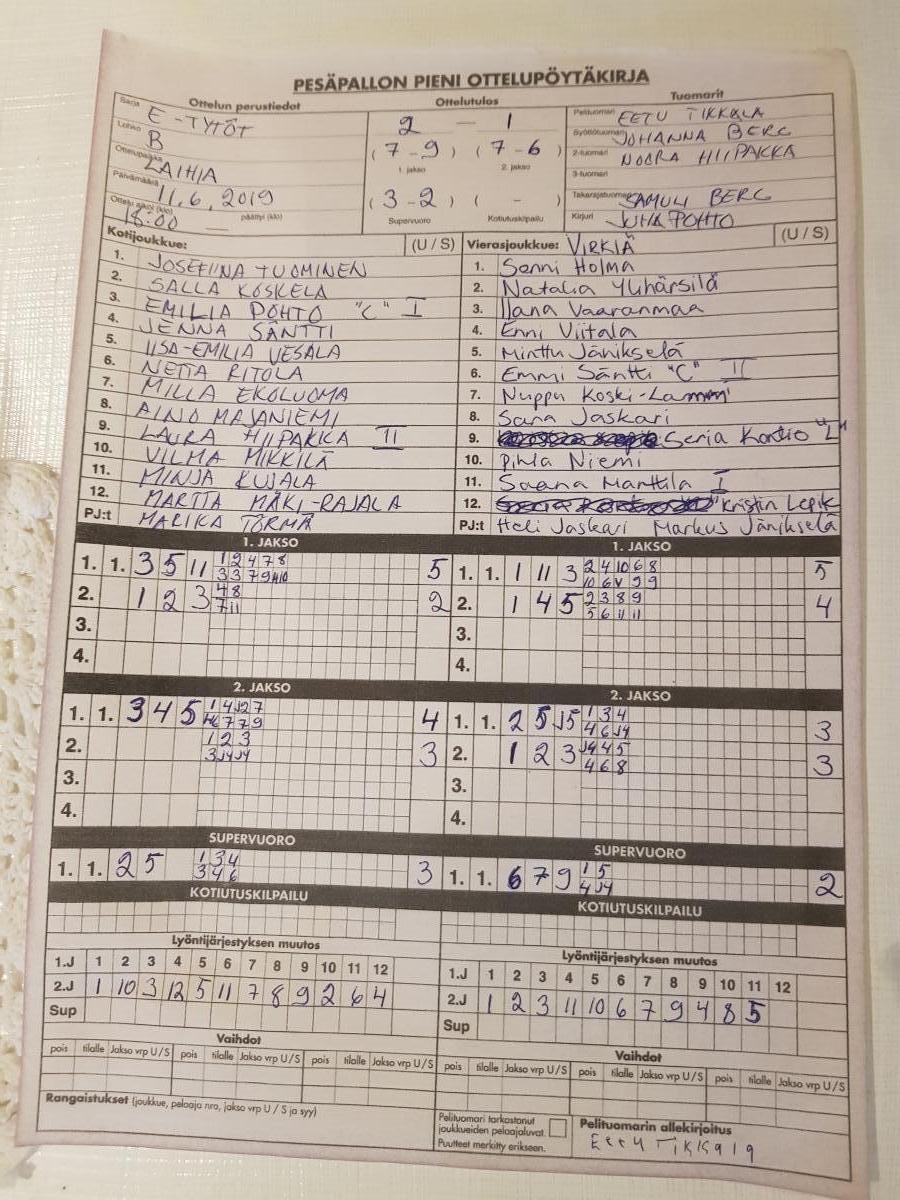 PESÄPALLON PIENI OTTELUPÖYTÄKIRJA
Ottelun perustiedot Ottelutulos Tuomarit
Sarja E-TYTÖT
Lohko B
Ottelupaikka LAIHIA
Päivämäärä 11.6.2019
Ottelu alkoi (klo) 18:00 päättyi (klo)
2 — 1
(7-9) (7-6)
1. jakso 2. jakso
(3-2) ( - )
Supervuoro Kotiutuskilpailu
Pelituomari EETU TIKKALA
Syöttötuomari JOHANNA BERG
2-tuomari NOORA HIIPAKKA
3-tuomari
Takarajatuomari SAMULI BERG
Kirjuri JUHA POHTO
Kotijoukkue: (U / S)
1. JOSEFIINA TUOMINEN
2. SALLA KOSKELA
3. EMILIA POHTO "C" I
4. JENNA SÄNTTI
5. IISA-EMILIA VESALA
6. NETTA RITOLA
7. MILLA EKOLUOMA
8. AINO MAJANIEMI
9. LAURA HIIPAKKA II
10. VILMA MIKKILÄ
11. MINJA KUJALA
12. MARTTA MÄKI-RAJALA
PJ:t MARIKA TÖRMÄ
Vierasjoukkue: VIRKIÄ (U / S)
1. Sanni Holma
2. Natalia Ylihärsilä
3. Ilana Vaaranmaa
4. Enni Viitala
5. Minttu Jänikselä
6. Emmi Säntti "C" II
7. Nuppu Koski-Lammi
8. Sara Jaskari
9. Senja Kontio "L"
10. Pihla Niemi
11. Saana Manttila I
12. Kristin Lepik
PJ:t Heli Jaskari Markus Jänikselä
1. JAKSO
1. 1. 3 5 11 1 2 4 7 8 5
3 3 7 9 10
2. 1 2 3 4 8 2
7 11
3.
4.
1. JAKSO
1. 1. 1 11 3 2 4 10 6 8 5
10 6 9 9
2. 1 4 5 2 3 8 9 4
5 6 11 11
3.
4.
2. JAKSO
1. 1. 3 4 5 1 4 2 7 4
7 7 9
2. 1 2 3 3
3 J4 J4
3.
4.
2. JAKSO
1. 1. 2 5 J5 1 3 4 3
4 6 J4
2. 1 2 3 J4 4 5 3
4 6 8
3.
4.
SUPERVUORO
1. 1. 2 5 1 3 4 3
3 4 6
SUPERVUORO
1. 1. 6 7 9 1 5 2
4 J4
KOTIUTUSKILPAILU
KOTIUTUSKILPAILU
Lyöntijärjestyksen muutos
1.J 1 2 3 4 5 6 7 8 9 10 11 12
2.J 1 10 3 12 5 11 7 8 9 2 6 4
Sup
Lyöntijärjestyksen muutos
1.J 1 2 3 4 5 6 7 8 9 10 11 12
2.J 1 2 3 11 10 6 7 9 4 8 5
Sup
Vaihdot
pois tilalle Jakso vrp U/S pois tilalle Jakso vrp U/S pois tilalle Jakso vrp U/S
Vaihdot
pois tilalle Jakso vrp U/S pois tilalle Jakso vrp U/S pois tilalle Jakso vrp U/S
Rangaistukset (joukkue, pelaaja nro, jakso vrp U / S ja syy)
Pelituomari tarkastanut
joukkueiden pelaajaluvat.
Puutteet merkitty erikseen.
Pelituomarin allekirjoitus
Eetu Tikkala